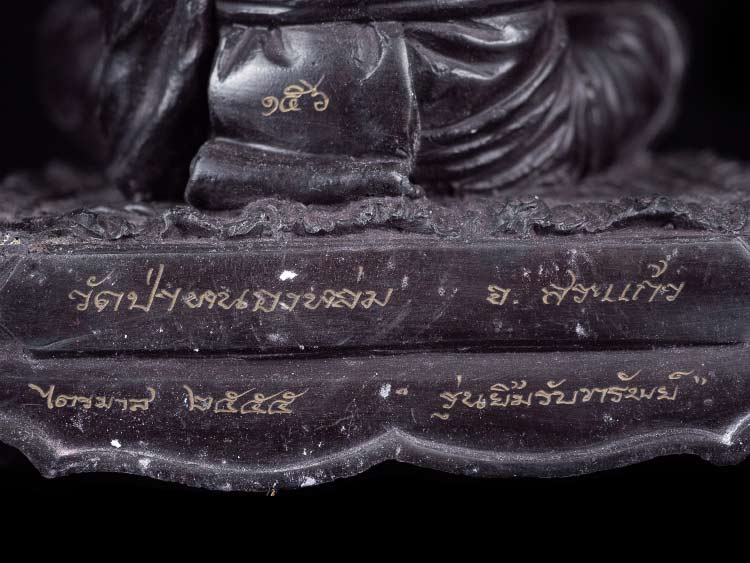 ๑๕๖
วัดป่าหนองหล่ม จ. สระแก้ว
ไตรมาส ๒๕๕๕ "รุ่นยิ้มรับทรัพย์"